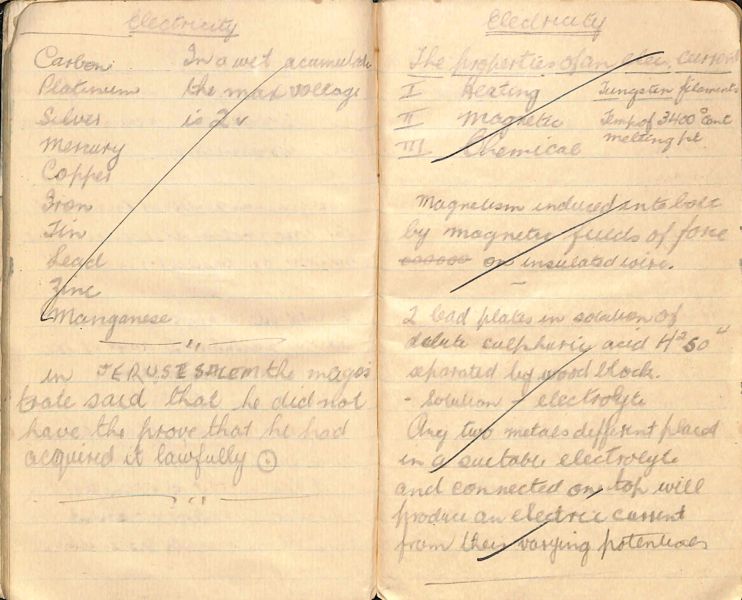 Electricity
Carbon In a wet acumulator
Platinum the max voltage
Silver is 2v
Mercury
Copper
Iron
Tin
Lead
Zinc
Manganese
in JERUSESALEM the magis
trate said that he did not
have the prove that he had
acquired it lawfully
Electricity
The properties of an elec. current
I Heating Tungsten filaments
II Magnetic Temp of 3400° cent
III Chemical melting pt.
Magnetism induced into bolt
by magnetic fields of force
on insulated wire.
2 lead plates in solution of
dilute sulphuric acid
separated by wood block.
- Solution - electrolyte
Any two metals different placed
in a suitable electrolyte
and connected on top will
produce an electric current
from their varying potentials